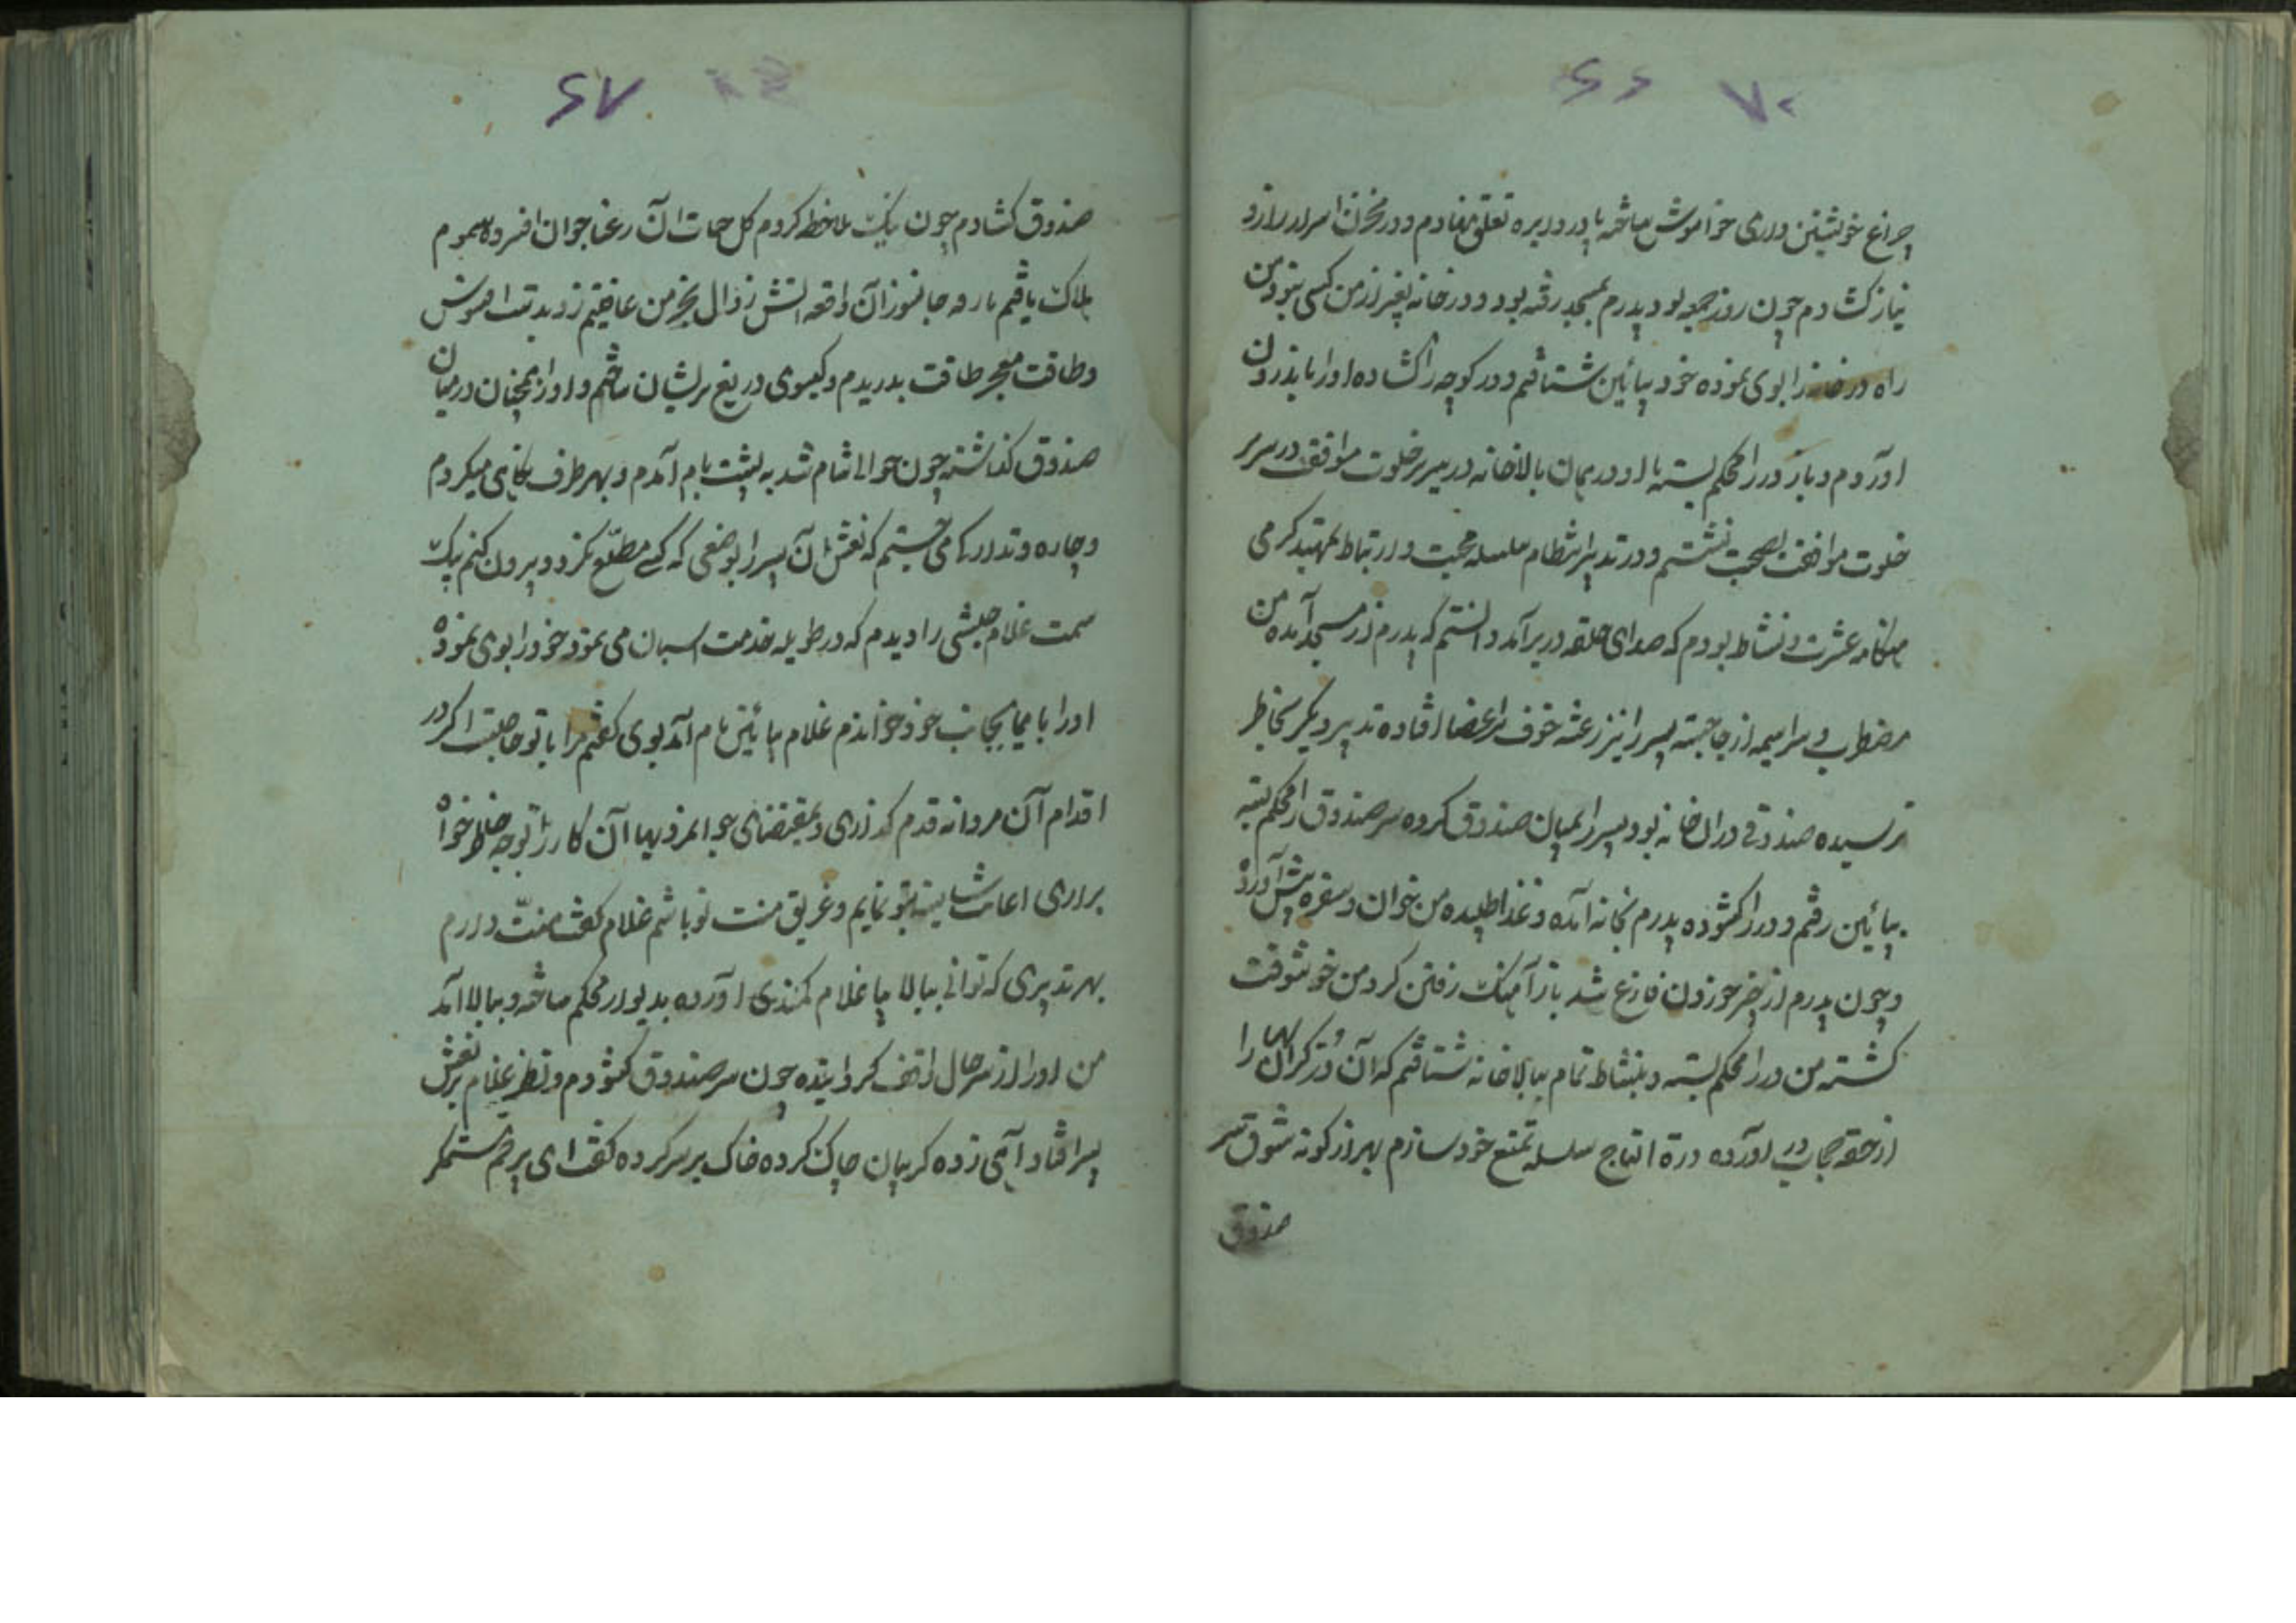 ۷۰ ۶۶
چراغ خویشتن داری خواموش ساخته پا در دایره تعلق نهادم و در مخزن اسرار راز و
نیاز کشادم چون روز جمعه بود پدرم بمسجد رفته بود و در خانه بغیر از من کسی نبود من
راه در خانه را بوی نموده خود بپائین شتافتم و در کوچه را کشاده او را باندرون
اوردم و باز در را محکم بسته با او در همان بالاخانه در سریر خلوت موافق در سریر
خلوت موافقت بصحبت نشستم و در تدبیر انتظام سلسله محبت و ارتباط تمهید کرمی
هنکامه عشرت و نشاط بودم که صدای حلقه در برآمد دانستم که پدرم از مسجد آمده من
مضطرب و سراسیمه از جا جسته پسر را نیز رعشه خوف بر اعضا افتاده تدبیر دیکر بخاطر
نرسیده صندوقی در ان خانه بود پسر را بمیان صندوق کرده سر صندوق را محکم بسته
بپائین رفتم و در را کشوده پدرم بخانه آمده و غذا طلبیده من خوان و سفره پیش آورده
و چون پدرم از خوردن فارغ شد باز آهنک رفتن کرد من خوشوقت
کشته من در را محکم بسته و بنشاط تمام ببالاخانه شتافتم که آن دُر کرانبها را
از حقه حجاب در اورده درة التاج سلسله تمتع خود سازم بهر از کونه شوق سر
صندوق
۶۷
صندوق کشادم چون نیک ملاحظه کردم کل حیات ان رعنا جوان افسرده سموم
هلاک یافتم باری جانسوز آن واقعه اتش زوال بخرمن عافیتم زد بدست افسوس
و طاقت معجر طاقت بدریدم و کیسوی دریغ پریشان ساختم و او را همچنان در میان
صندوق کذاشته چون حوالی شام شد به پشت بام آمدم و بهر طرف نکاهی میکردم
و چاره و تدارک می جستم که نعش آن پسر را بوضعی که کسی مطلع نکردد بیرون کنم بیک
سمت غلام حبشی را دیدم که در طویله خدمت اسبان می نمود خود را بوی نموده
او را بایما بجانب خود خواندم غلام بپائین بام آمد بوی کفتم مرا با تو حاجتست اکر در
اقدام آن مردانه قدم کذاری و بمقتضای جوانمردیها آن کار را بوجه خاطر خواه
براری اعانت شایسته بتو نمایم و غریق منت تو باشم غلام کفت منت دارم
بهر تدبیری که توانی ببالا بیا غلام کمندی اورده بدیوار محکم ساخته و ببالا امد
من او را از سر حال واقف کردانیده چون سر صندوق کشودم و نظر غلام بر نعش
پسر افتاد آهی زده کریبان چاک کرده خاک بر سر کرده کفت ای بیرحم ستمکر